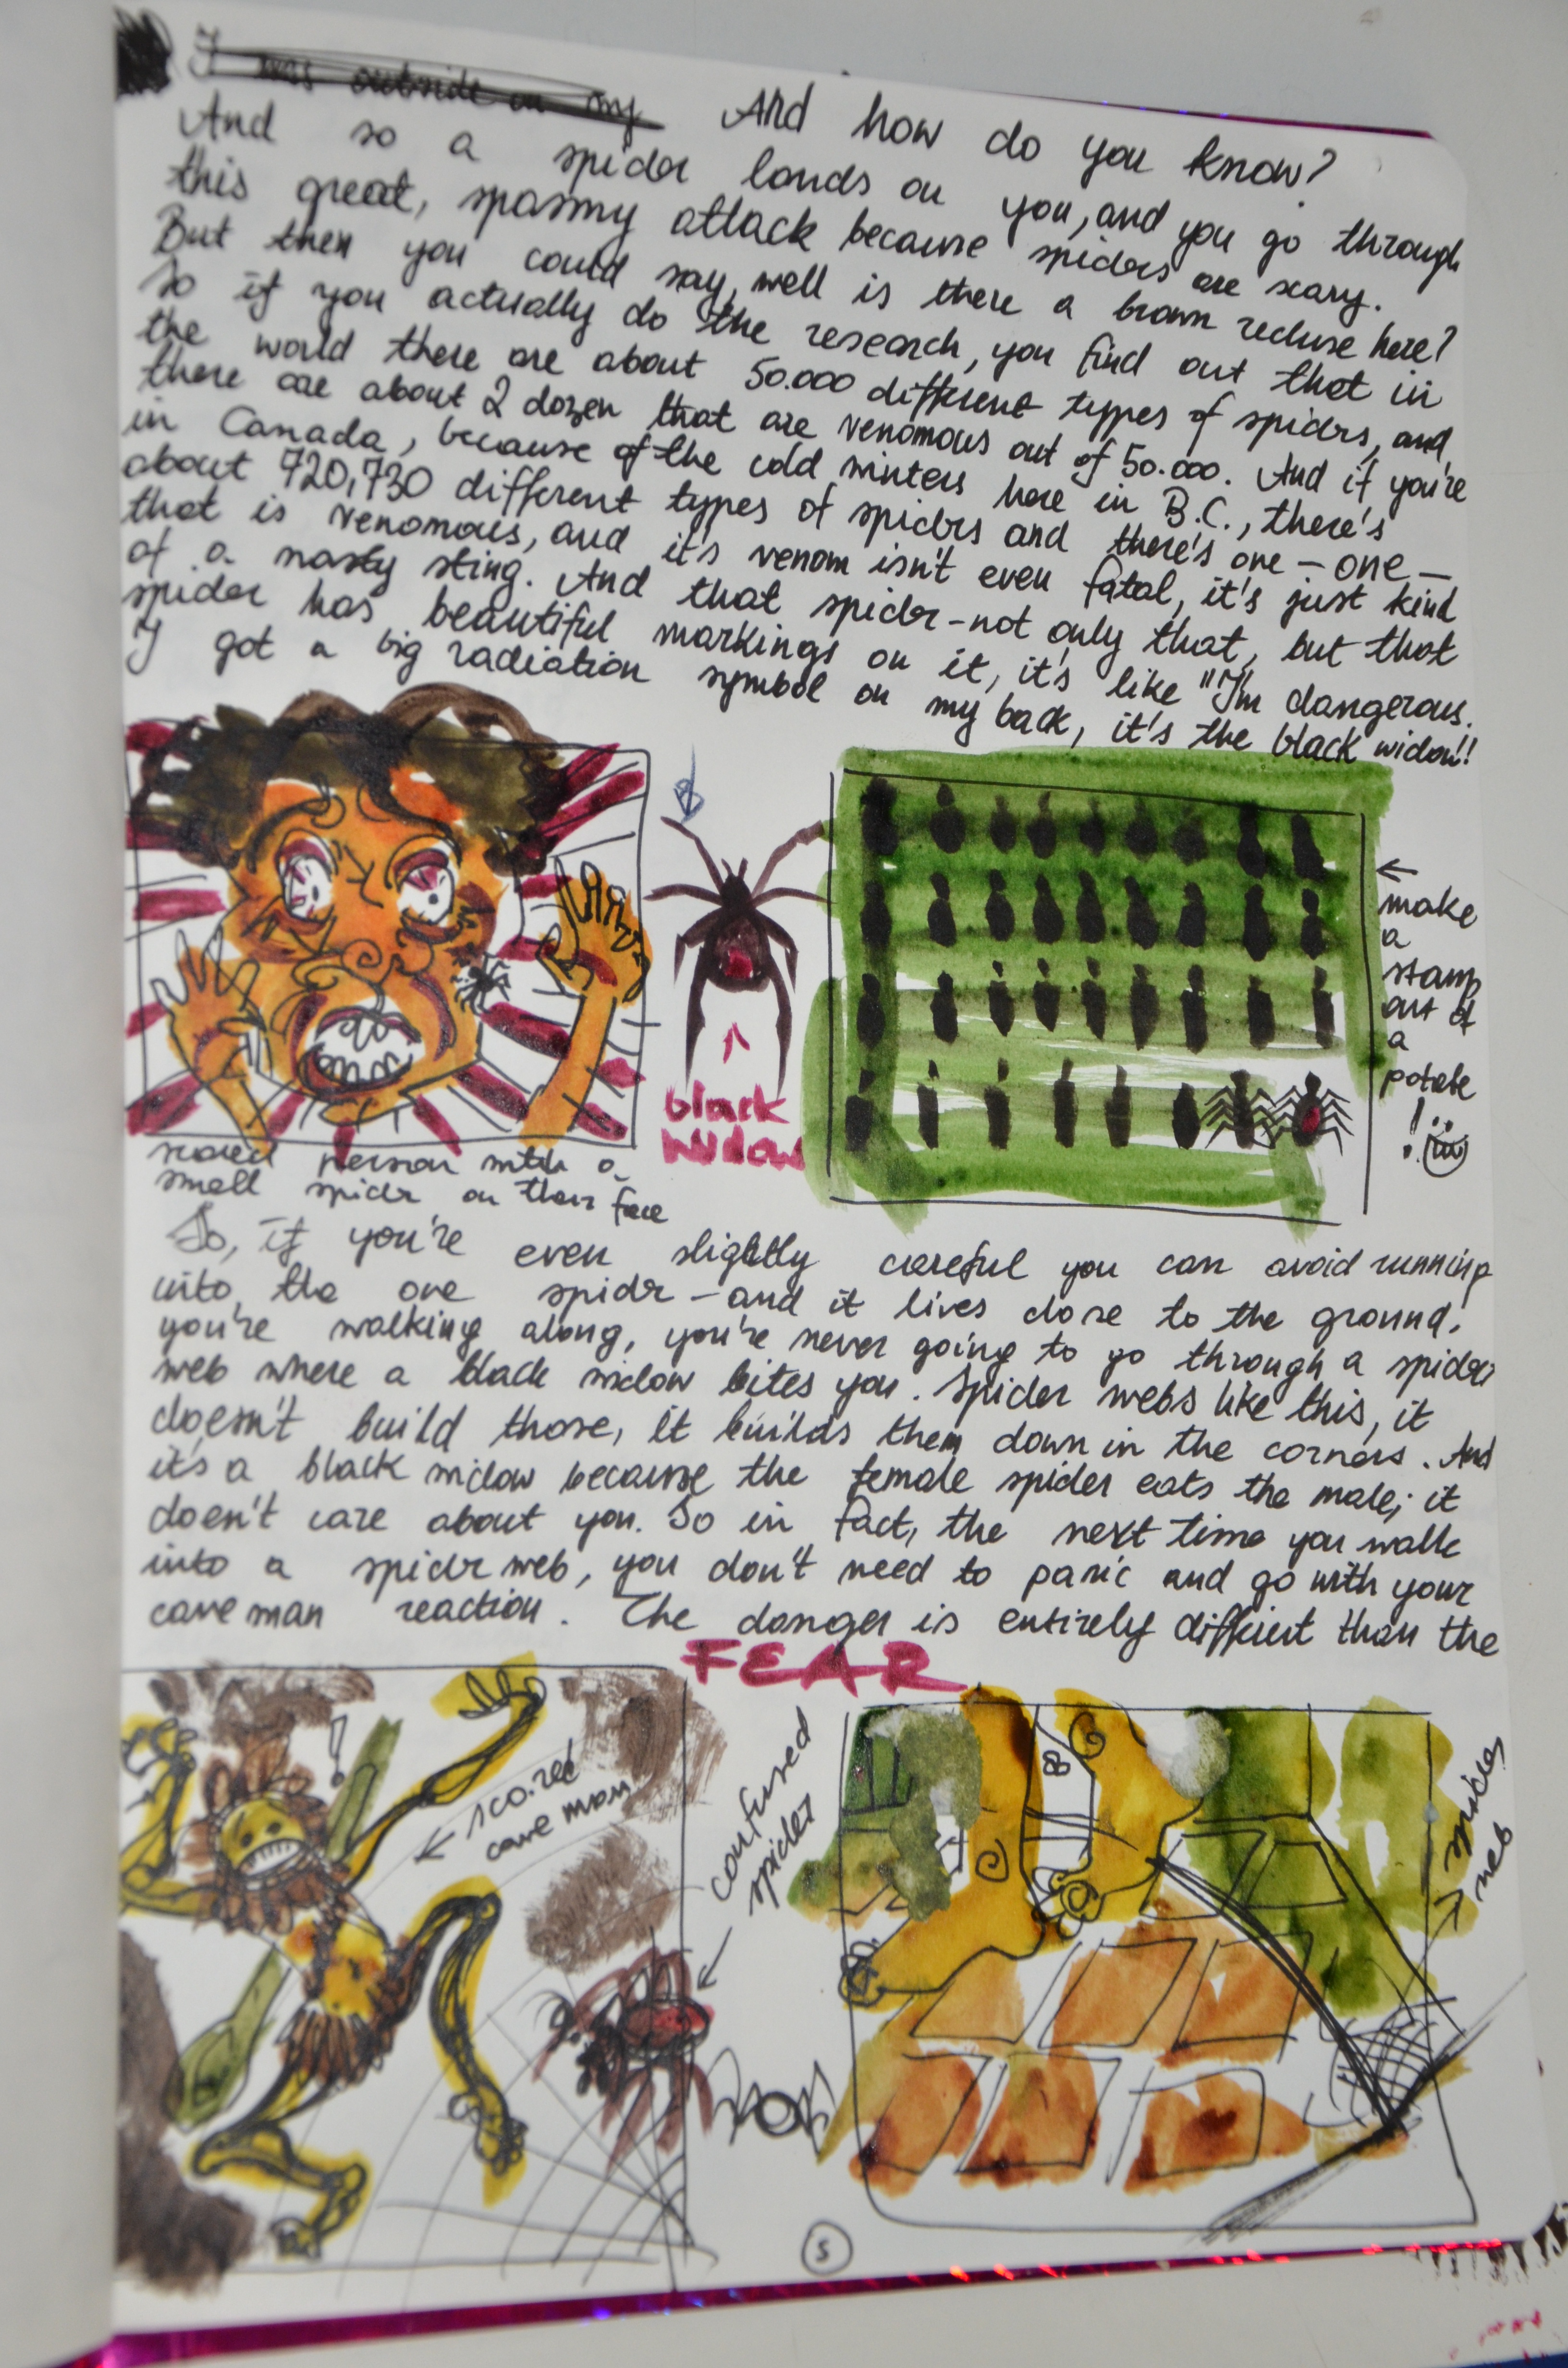 I was outside in my
And how do you know?
And so a spider lands on you, and you go through
this great, spasmy attack because spiders are scary.
But then you could say, well is there a brown recluse here?
So if you actually do the research, you find out that in
the world there are about 50.000 different types of spiders, and
there are about 2 dozen that are venomous out of 50.000. And if you're
in Canada, because of the cold winters here in B.C., there's
about 720,730 different types of spiders and there's one - one -
that is venomous, and it's venom isn't even fatal, it's just kind
of a nasty sting. And that spider - not only that, but that
spider has beautiful markings on it, it's like "I'm dangerous.
I got a big radiation symbol on my back, it's the black widow!!
black
widow
←
make
a
stamp
out of
a
potato
!
scared person with a
small spider on their face
So, if you're even slightly careful you can avoid running
into the one spider - and it lives close to the ground,
you're walking along, you're never going to go through a spider
web where a black widow bites you. Spider webs like this, it
doesn't build those, it builds them down in the corners. And
it's a black widow because the female spider eats the male; it
doesn't care about you. So in fact, the next time you walk
into a spider web, you don't need to panic and go with your
cave man reaction. The danger is entirely different than the
FEAR
!
scared
cave man
confused
spider
spider
web
5